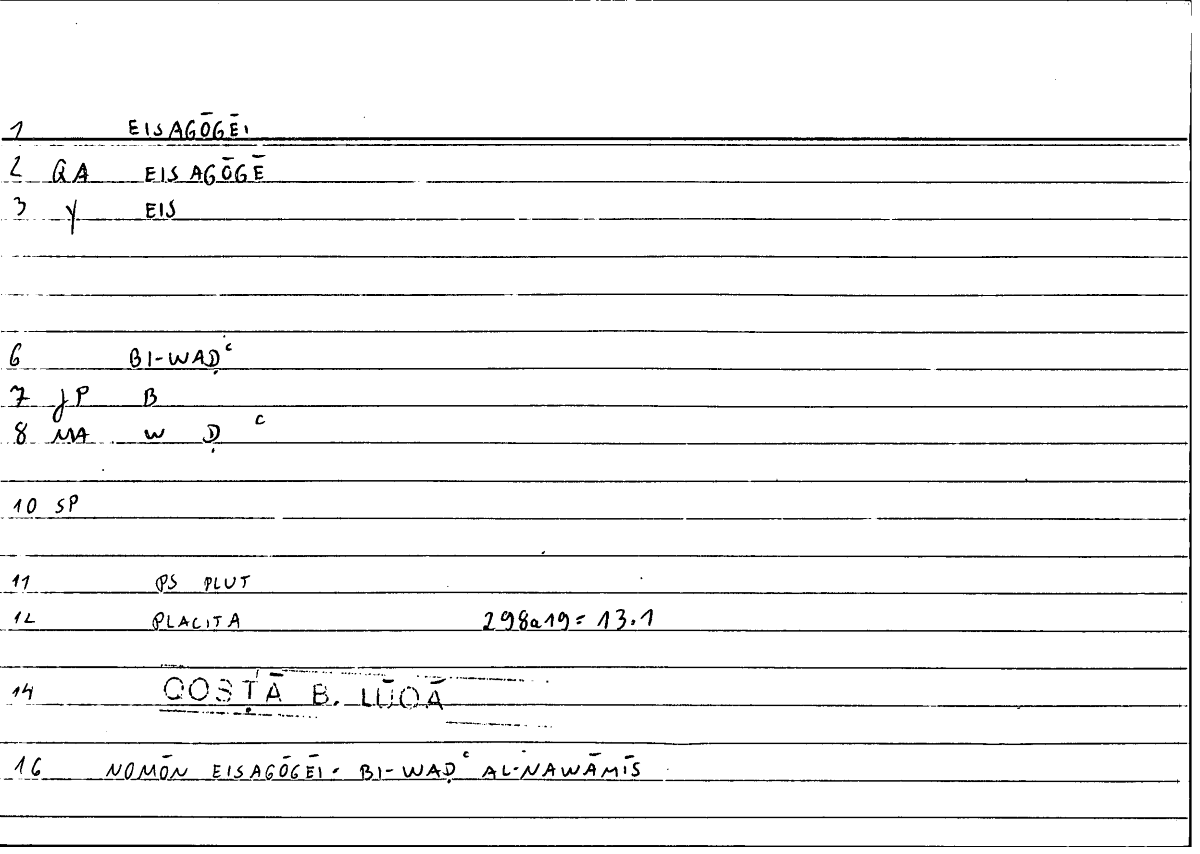 1 EISAGŌGĒI
2 QA EISAGŌGĒ
3 Y EIS
6 BI-WAḌʿ
7 JP B
8 MA W Ḍ ʿ
10 SP
11 PS PLUT
12 PLACITA 298a19=13.1
14 QOSṬĀ B. LŪQĀ
16 NOMŌN EISAGŌGĒI - BI-WAḌʿ AL-NAWĀMĪS